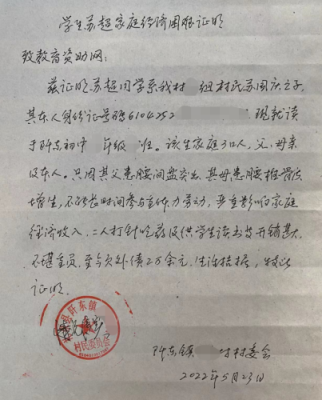 学生苏超家庭经济困难证明
致教育资助网：
兹证明苏超同学系我村 组村民苏国庆之子，
其本人身份证号码6104252 现就读
于阡东初中 年级 班。该生家庭3口人，父、母亲
及本人。只因其父患腰间盘突出，其母患腰椎骨质
增生，不能长时间参与重体力劳动，严重影响家庭
经济收入，二人打针吃药及供学生读书故开销甚大
不堪重负，至今欠外债2万余元，生活拮据，特此
证明。
阡东镇
村民委员会
阡东镇 村村委会
2022年5月23日